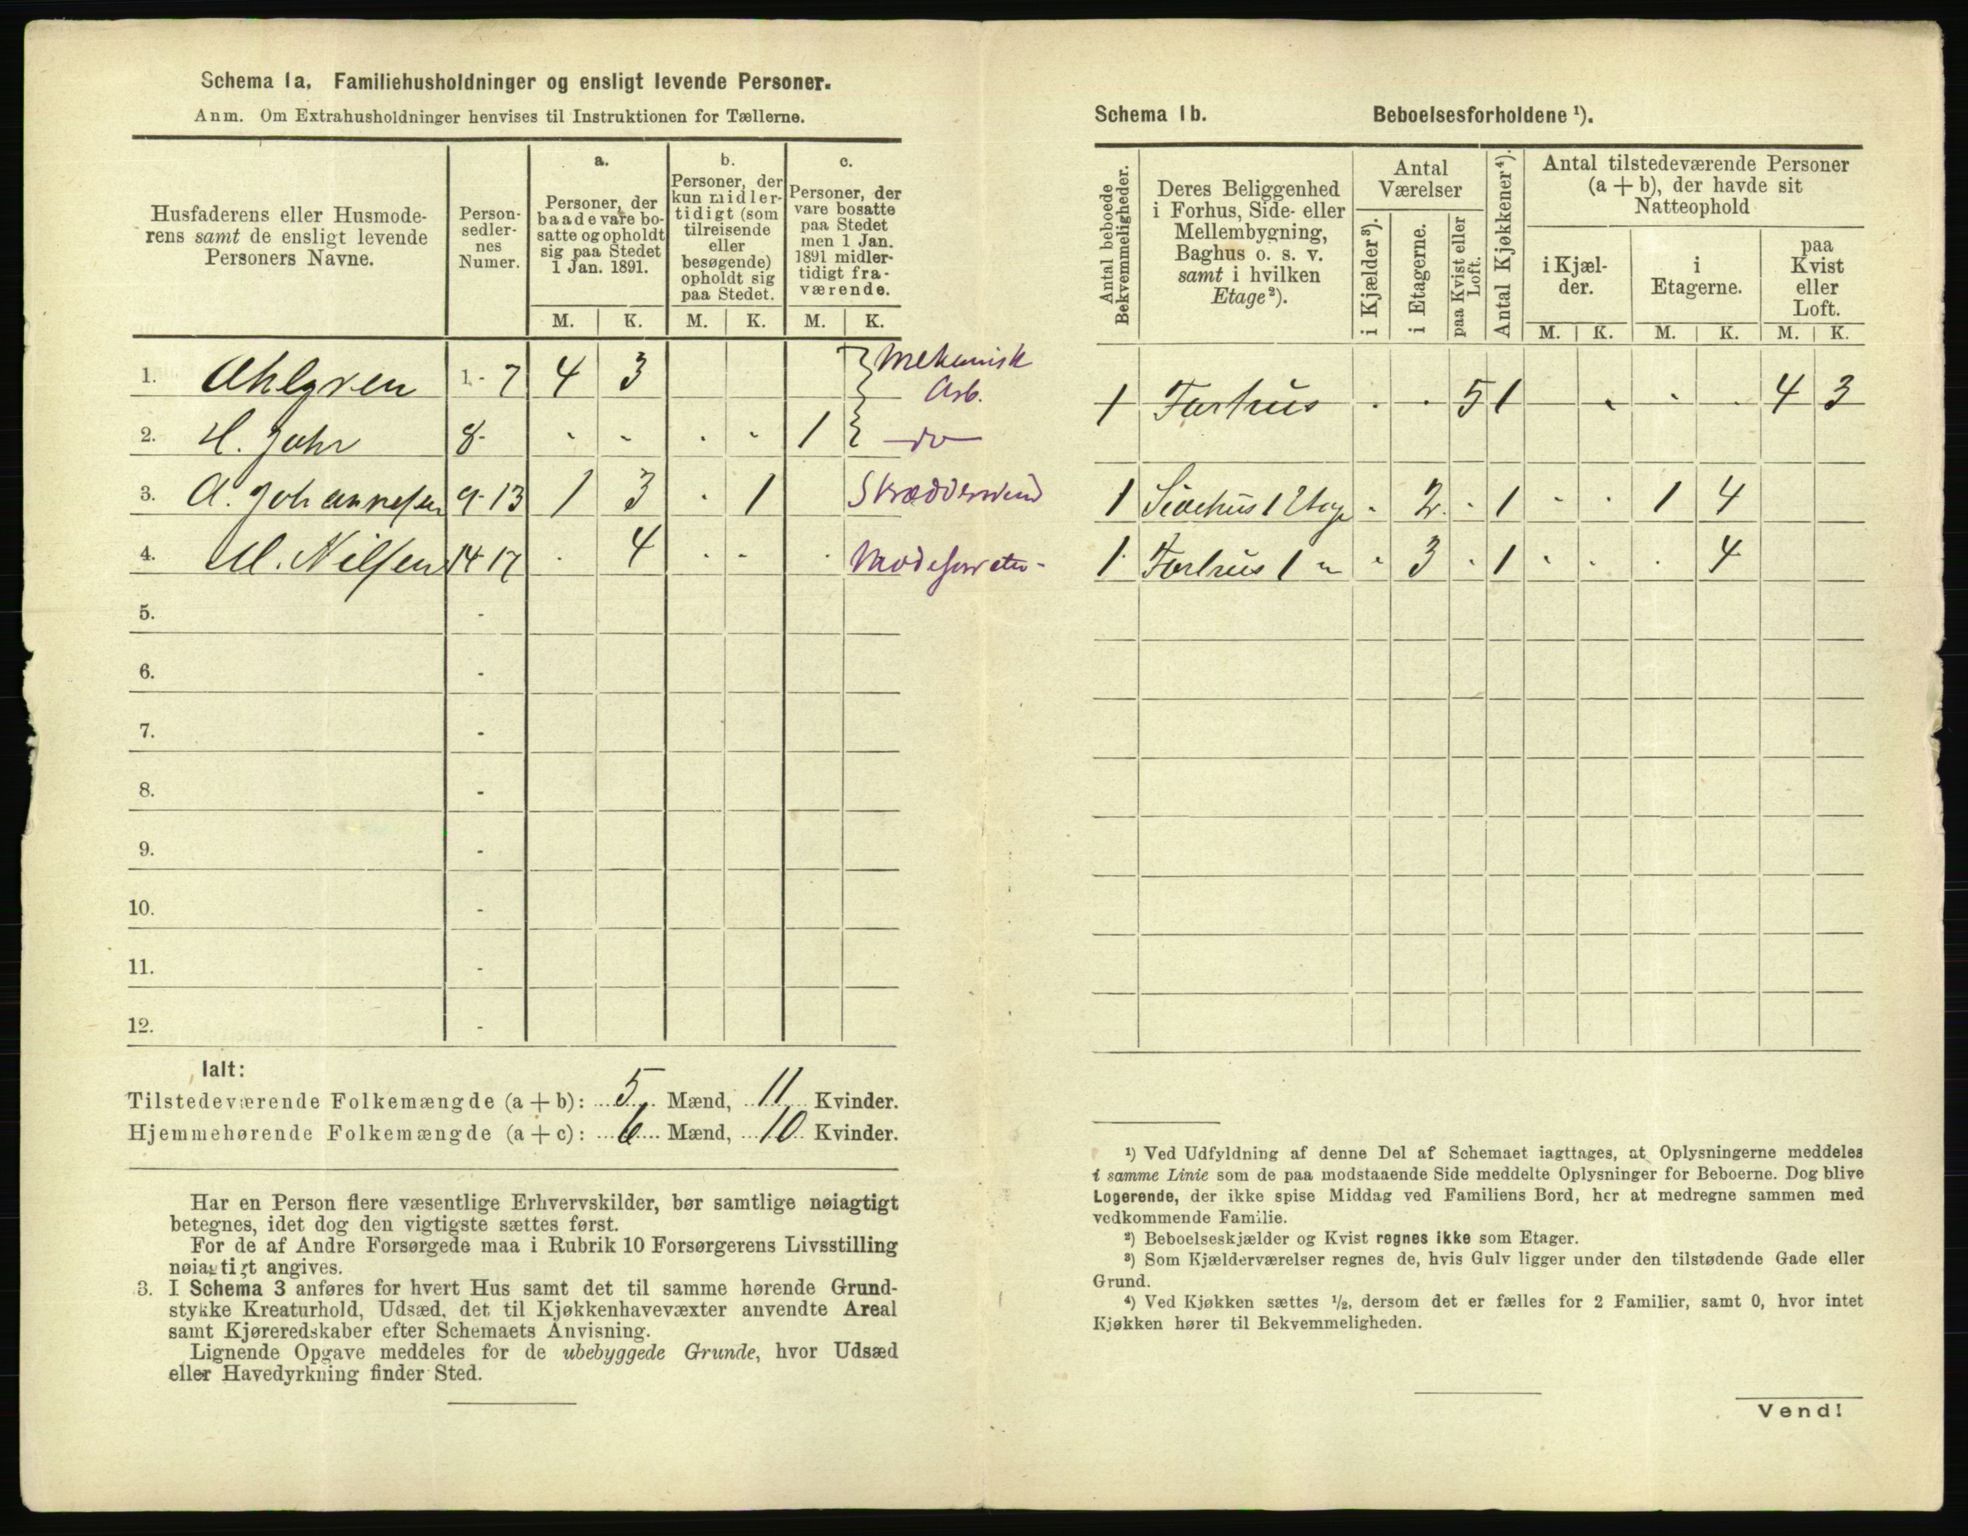 Schema 1a. Familiehusholdninger og ensligt levende Personer.
Anm. Om Extrahusholdninger henvises til Instruktionen for Tællerne.
Husfaderens eller Husmode-
rens samt de ensligt levende
Personers Navne.
Person-
sedler-
nes
Numer.
a.
Personer, der
baade vare bo-
satte og opholdt
sig paa Stedet
1 Jan. 1891.
b.
Personer, der
kun midler-
tidigt (som
tilreisende
eller
besøgende)
opholdt sig
paa Stedet.
c.
Personer, der
vare bosatte
paa Stedet
men 1 Jan.
1891 midler-
tidigt fra-
værende.
M. K. M. K. M. K.
1. Ahlgren 1-7 4 3 Mekanisk
Arb.
2. H. Johr 8- - - - - 1 do
3. A. Johannesen 9-13 1 3 - 1
4. M. Nilsen 14-17 - 4 - - -
5. -
6. -
7. -
8. -
9. -
10. -
11. -
12. -
Ialt:
Tilstedeværende Folkemængde (a + b): 5 Mænd, 11 Kvinder.
Hjemmehørende Folkemængde (a + c): 6 Mænd, 10 Kvinder.
Har en Person flere væsentlige Erhvervskilder, bør samtlige nøiagtigt
betegnes, idet dog den vigtigste sættes først.
For de af Andre Forsørgede maa i Rubrik 10 Forsørgerens Livsstilling
nøiagtigt angives.
3. I Schema 3 anføres for hvert Hus samt det til samme hørende Grund-
stykke Kreaturhold, Udsæd, det til Kjøkkenhavevæxter anvendte Areal
samt Kjøreredskaber efter Schemaets Anvisning.
Lignende Opgave meddeles for de ubebyggede Grunde, hvor Udsæd
eller Havedyrkning finder Sted.
Schema 1b. Beboelsesforholdene ¹).
Antal beboede
Bekvemmeligheder.
Deres Beliggenhed
i Forhus, Side- eller
Mellembygning,
Baghus o. s. v.
samt i hvilken
Etage²).
Antal
Værelser
i Kjælder³).
i Etagerne.
paa Kvist eller
Loft.
Antal Kjøkkener⁴).
Antal tilstedeværende Personer
(a + b), der havde sit
Natteophold
i Kjæl-
der.
i
Etagerne.
paa
Kvist
eller
Loft.
M. K. M. K. M. K.
1 Forhus - - 5 1 - - - - 4 3
1 Sidehus 1 Etage - 2 - 1 - - 1 4
1 Forhus 1 " - 3 - 1 - - - 4
¹) Ved Udfyldning af denne Del af Schemaet iagttages, at Oplysningerne meddeles
i samme Linie som de paa modstaaende Side meddelte Oplysninger for Beboerne. Dog blive
Logerende, der ikke spise Middag ved Familiens Bord, her at medregne sammen med
vedkommende Familie.
²) Beboelseskjælder og Kvist regnes ikke som Etager.
³) Som Kjælderværelser regnes de, hvis Gulv ligger under den tilstødende Gade eller
Grund.
⁴) Ved Kjøkken sættes ½, dersom det er fælles for 2 Familier, samt 0, hvor intet
Kjøkken hører til Bekvemmeligheden.
Vend!